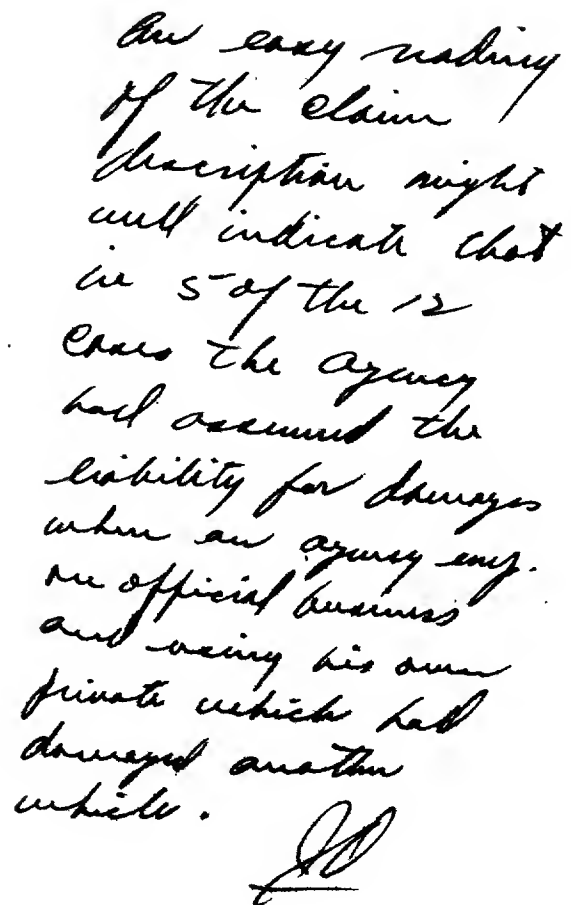 An easy reading
of the claim
description might
well indicate that
in 5 of the 12
cases the agency
had assumed the
liability for damages
when an agency emp.
on official business
and using his own
private vehicle had
damaged another
vehicle.
JD